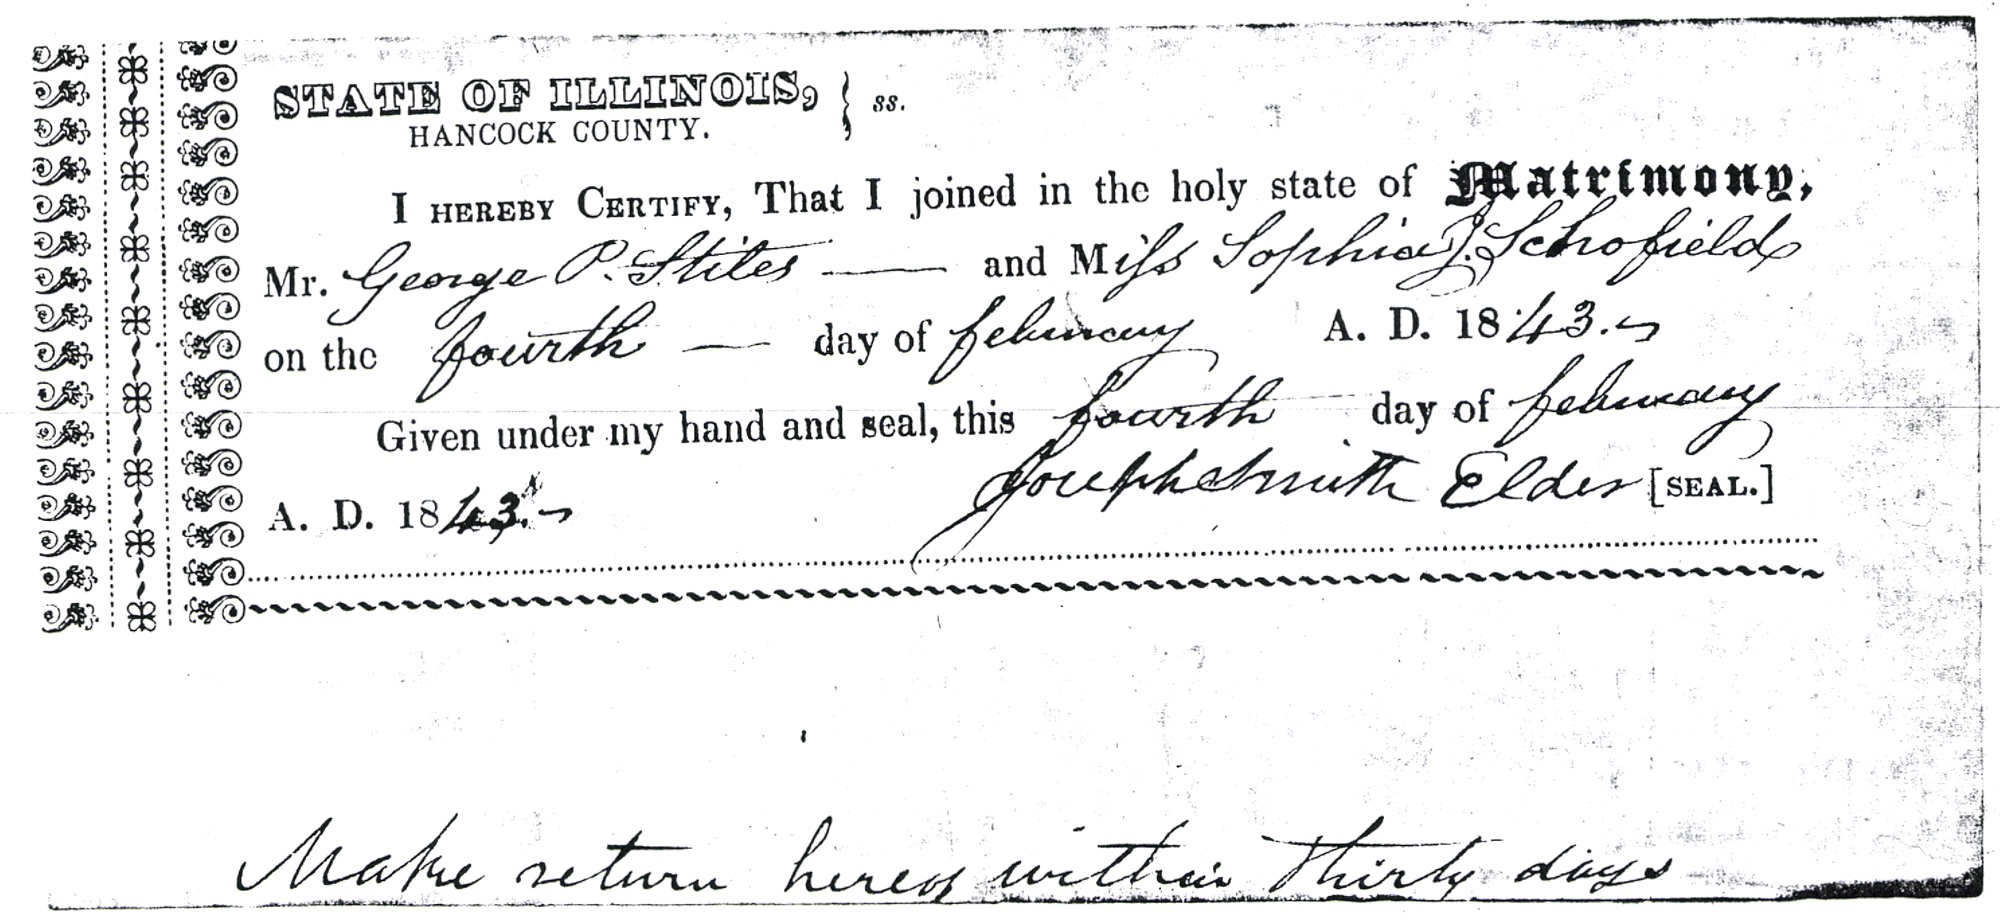 STATE OF ILLINOIS, } ss.
HANCOCK COUNTY.
I HEREBY CERTIFY, That I joined in the holy state of Matrimony,
Mr. George P. Stiles — and Miss Sophia J. Schofield
on the fourth — day of february A. D. 1843.
Given under my hand and seal, this fourth day of february
A. D. 1843. Joseph Smith Elder [SEAL.]
Make return hereof within thirty days